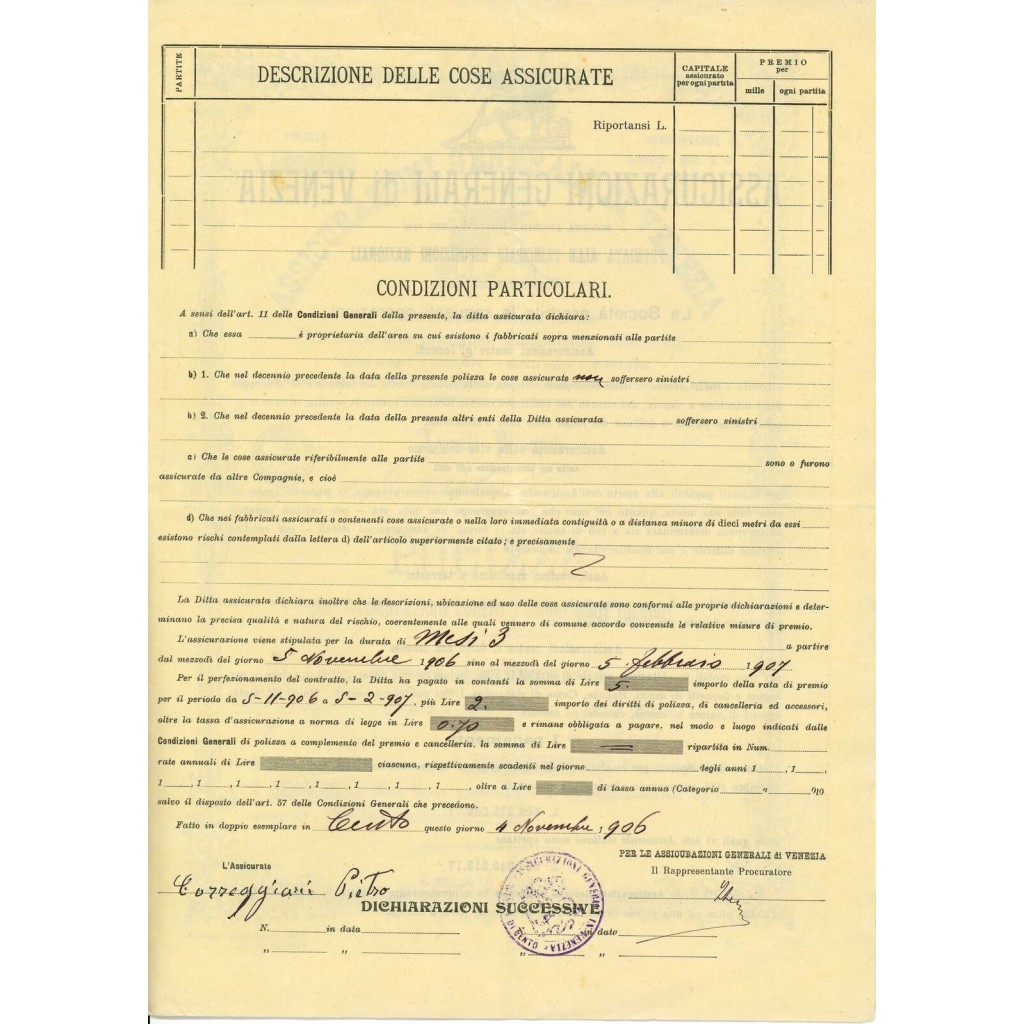 PARTITE
DESCRIZIONE DELLE COSE ASSICURATE
CAPITALE
assicurato
per ogni partita
PREMIO
per
mille
ogni partita
Riportansi L.
ASSICURAZIONI GENERALI di VENEZIA
CONDIZIONI PARTICOLARI.
A sensi dell'art. 11 delle Condizioni Generali della presente, la ditta assicurata dichiara:
a) Che essa è proprietaria dell'area su cui esistono i fabbricati sopra menzionati alle partite
b) 1. Che nel decennio precedente la data della presente polizza le cose assicurate non soffersero sinistri
b) 2. Che nel decennio precedente la data della presente altri enti della Ditta assicurata soffersero sinistri
c) Che le cose assicurate riferibilmente alle partite sono o furono
assicurate da altre Compagnie, e cioè
d) Che nei fabbricati assicurati o contenenti cose assicurate o nella loro immediata contiguità o a distanza minore di dieci metri da essi
esistono rischi contemplati dalla lettera d) dell'articolo superiormente citato; e precisamente
La Ditta assicurata dichiara inoltre che le descrizioni, ubicazione ed uso delle cose assicurate sono conformi alle proprie dichiarazioni e deter-
minano la precisa qualità e natura del rischio, coerentemente alle quali vennero di comune accordo convenute le relative misure di premio.
L'assicurazione viene stipulata per la durata di Mesi 3 a partire
dal mezzodì del giorno 5 Novembre 1906 sino al mezzodì del giorno 5 febbraio 1907
Per il perfezionamento del contratto, la Ditta ha pagato in contanti la somma di Lire 5. importo della rata di premio
per il periodo da 5-11-906 a 5-2-907, più Lire 2. importo dei diritti di polizza, di cancelleria ed accessori,
oltre la tassa d'assicurazione a norma di legge in Lire 0.70 e rimane obbligata a pagare, nel modo e luogo indicati dalle
Condizioni Generali di polizza a complemento del premio e cancelleria, la somma di Lire = ripartita in Num.
rate annuali di Lire ciascuna, rispettivamente scadenti nel giorno degli anni 1 , 1 ,
1 , 1 , 1 , 1 , 1 , 1 , 1 , 1 , oltre a Lire di tassa annua (Categoria a 0|00
salvo il disposto dell'art. 57 delle Condizioni Generali che precedono.
Fatto in doppio esemplare in Cento questo giorno 4 Novembre 1906
PER LE ASSICURAZIONI GENERALI di VENEZIA
L'Assicurato
Il Rappresentante Procuratore
Correggiari Pietro
DICHIARAZIONI SUCCESSIVE
N. in data in dato
„ „ „ „